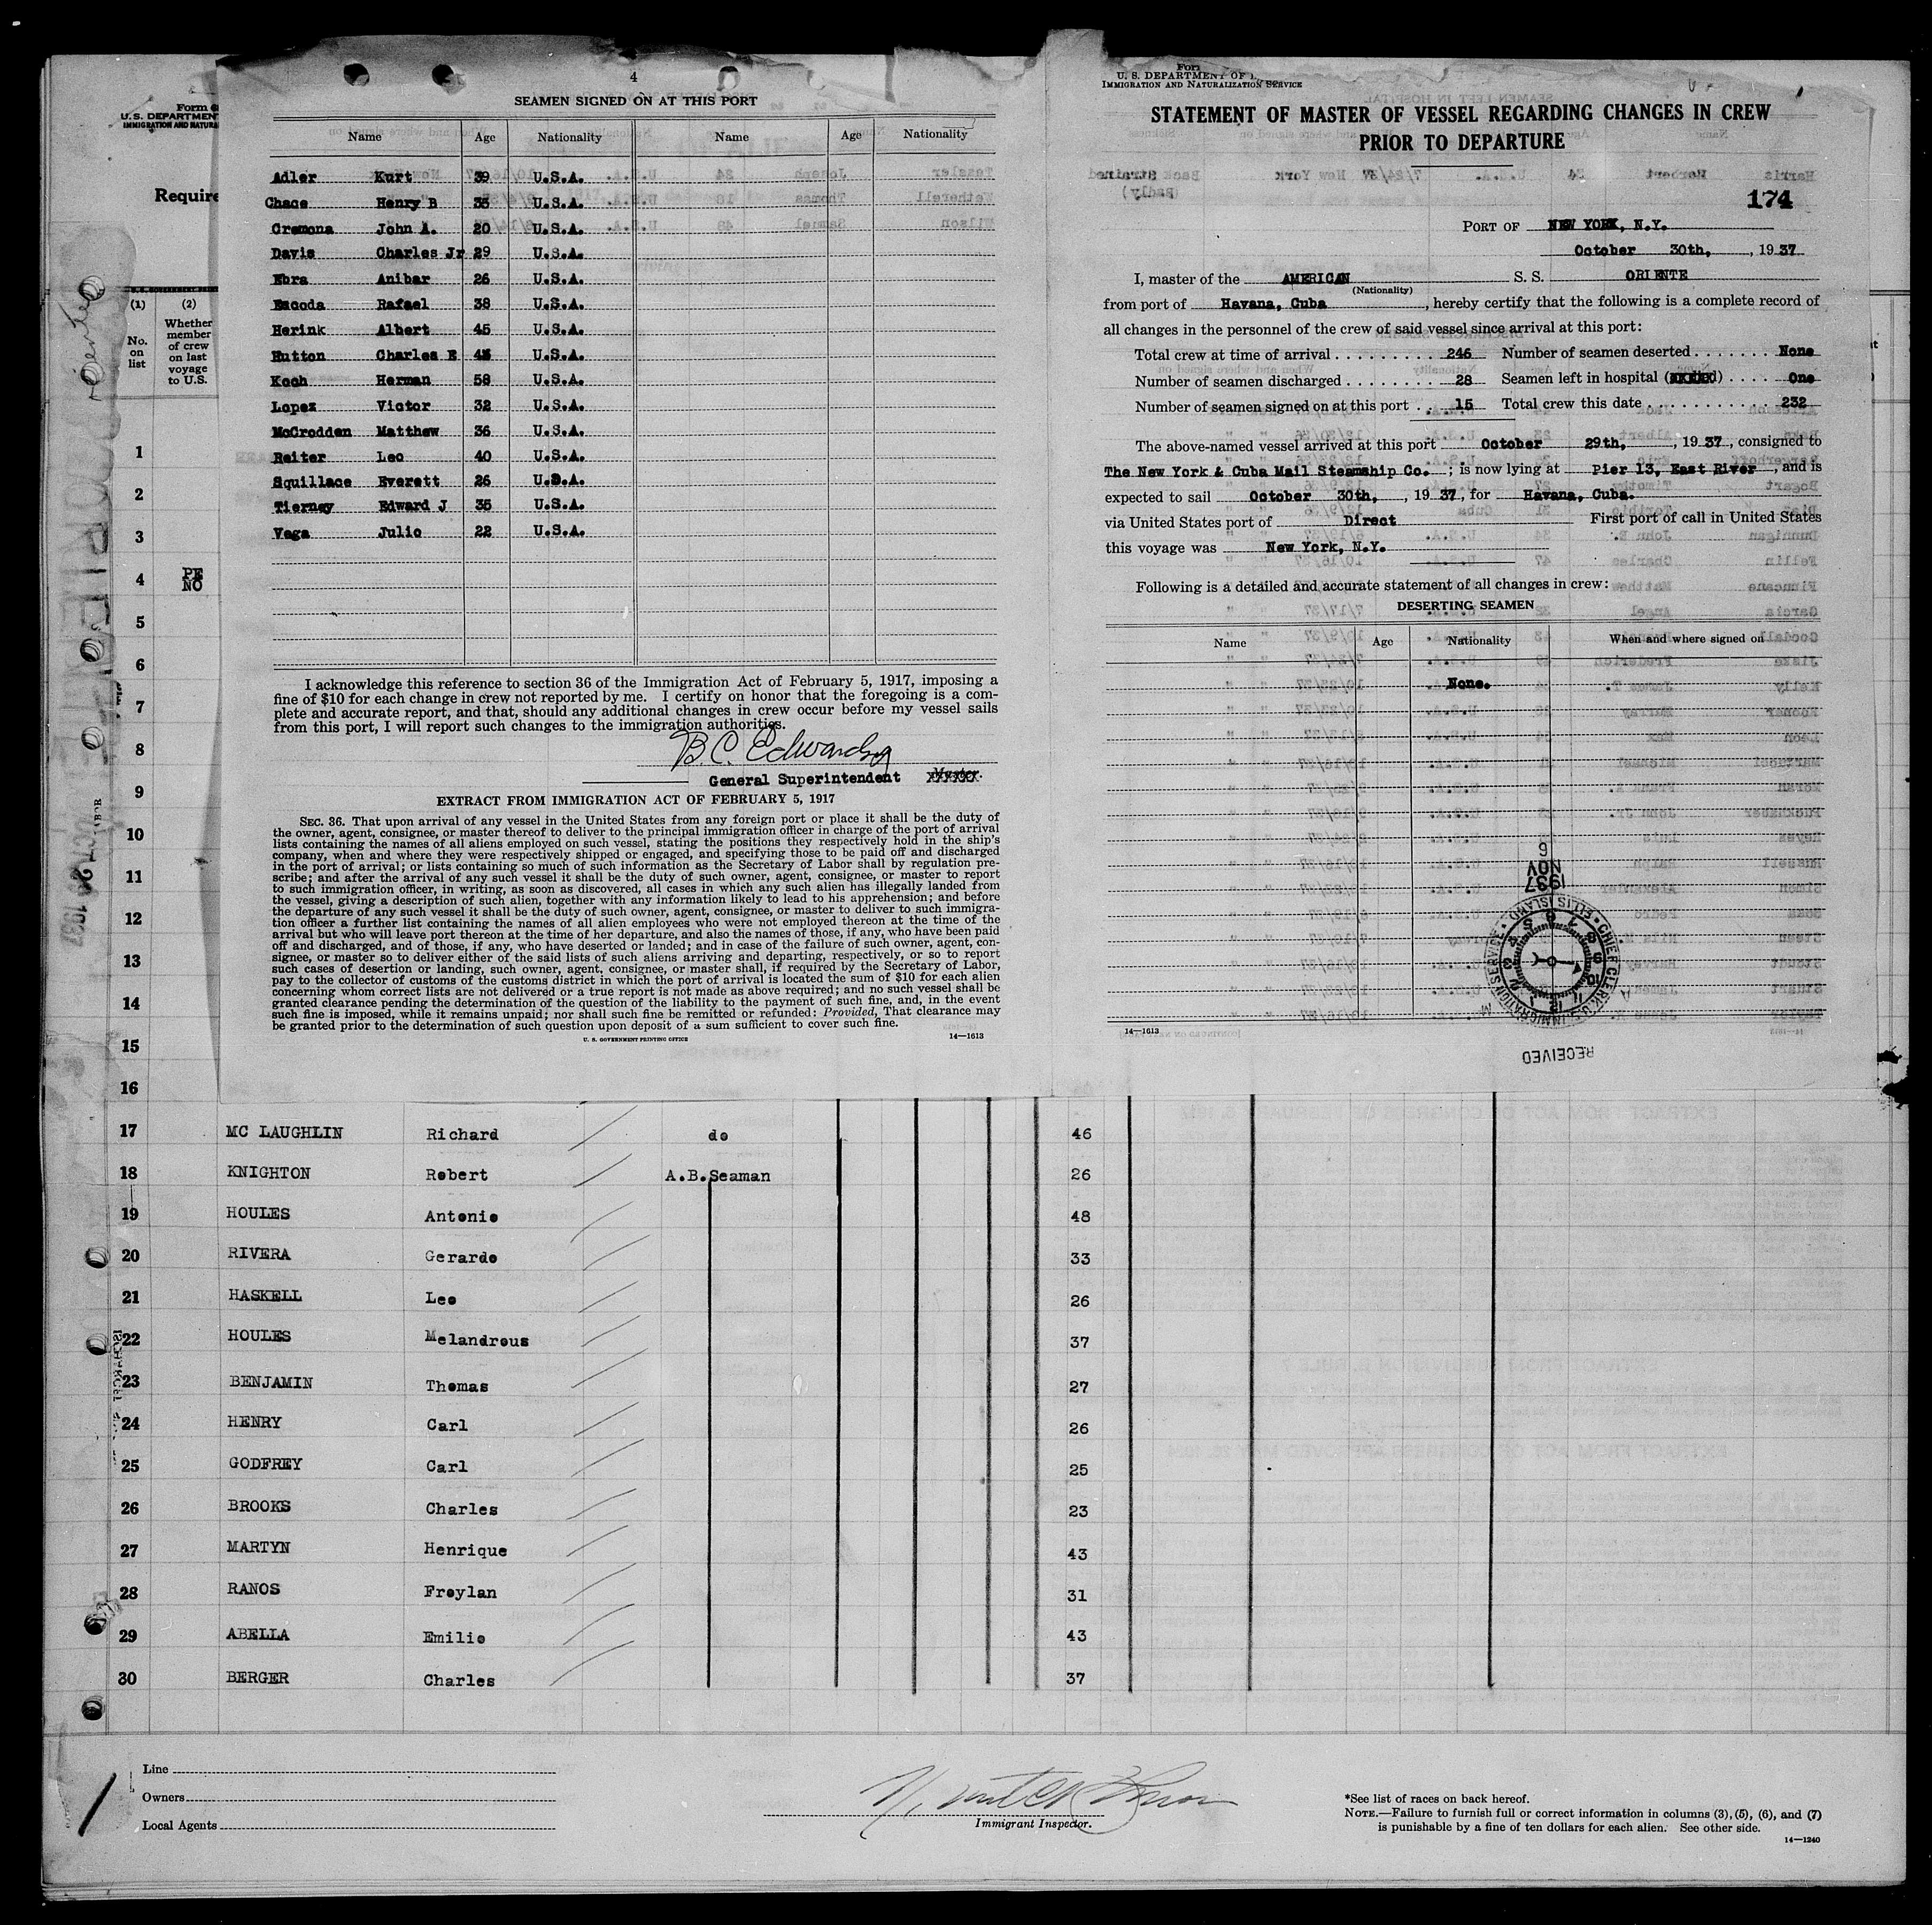 Form
U. S. DEPARTMENT
IMMIGRATION AND NATURA
Require
(1)
(2)
No. on list
Whether member of crew on last voyage to U.S.
PE
NO
4
SEAMEN SIGNED ON AT THIS PORT
Name Age Nationality Name Age Nationality
Adler Kurt 39 U.S.A.
Chace Henry B 35 U.S.A.
Cremona John A. 20 U.S.A.
Davis Charles Jr 29 U.S.A.
Ebra Anibar 26 U.S.A.
Escoda Rafael 38 U.S.A.
Herink Albert 45 U.S.A.
Hutton Charles E U.S.A.
Koch Herman 58 U.S.A.
Lopez Victor 32 U.S.A.
McCrodden Matthew 36 U.S.A.
Reiter Leo 40 U.S.A.
Squillace Everett 26 U.S.A.
Tierney Edward J 35 U.S.A.
Vega Julio 22 U.S.A.
I acknowledge this reference to section 36 of the Immigration Act of February 5, 1917, imposing a
fine of $10 for each change in crew not reported by me. I certify on honor that the foregoing is a com-
plete and accurate report, and that, should any additional changes in crew occur before my vessel sails
from this port, I will report such changes to the immigration authorities.
B.C. Edwards
General Superintendent Master.
EXTRACT FROM IMMIGRATION ACT OF FEBRUARY 5, 1917
SEC. 36. That upon arrival of any vessel in the United States from any foreign port or place it shall be the duty of
the owner, agent, consignee, or master thereof to deliver to the principal immigration officer in charge of the port of arrival
lists containing the names of all aliens employed on such vessel, stating the positions they respectively hold in the ship's
company, when and where they were respectively shipped or engaged, and specifying those to be paid off and discharged
in the port of arrival; or lists containing so much of such information as the Secretary of Labor shall by regulation pre-
scribe; and after the arrival of any such vessel it shall be the duty of such owner, agent, consignee, or master to report
to such immigration officer, in writing, as soon as discovered, all cases in which any such alien has illegally landed from
the vessel, giving a description of such alien, together with any information likely to lead to his apprehension; and before
the departure of any such vessel it shall be the duty of such owner, agent, consignee, or master to deliver to such immigra-
tion officer a further list containing the names of all alien employees who were not employed thereon at the time of the
arrival but who will leave port thereon at the time of her departure, and also the names of those, if any, who have been paid
off and discharged, and of those, if any, who have deserted or landed; and in case of the failure of such owner, agent, con-
signee, or master so to deliver either of the said lists of such aliens arriving and departing, respectively, or so to report
such cases of desertion or landing, such owner, agent, consignee, or master shall, if required by the Secretary of Labor,
pay to the collector of customs of the customs district in which the port of arrival is located the sum of $10 for each alien
concerning whom correct lists are not delivered or a true report is not made as above required; and no such vessel shall be
granted clearance pending the determination of the question of the liability to the payment of such fine, and, in the event
such fine is imposed, while it remains unpaid; nor shall such fine be remitted or refunded: Provided, That clearance may
be granted prior to the determination of such question upon deposit of a sum sufficient to cover such fine.
U. S. GOVERNMENT PRINTING OFFICE 14—1613
Form
U. S. DEPARTMENT OF
IMMIGRATION AND NATURALIZATION SERVICE
STATEMENT OF MASTER OF VESSEL REGARDING CHANGES IN CREW
PRIOR TO DEPARTURE
174
PORT OF NEW YORK, N.Y.
October 30th, , 19 37
I, master of the AMERICAN S. S. ORIENTE
(Nationality)
from port of Havana, Cuba , hereby certify that the following is a complete record of
all changes in the personnel of the crew of said vessel since arrival at this port:
Total crew at time of arrival 246 Number of seamen deserted None
Number of seamen discharged 28 Seamen left in hospital One
Number of seamen signed on at this port 15 Total crew this date 232
The above-named vessel arrived at this port October 29th, , 19 37, consigned to
The New York & Cuba Mail Steamship Co. ; is now lying at Pier 13, East River , and is
expected to sail October 30th, , 19 37, for Havana, Cuba.
via United States port of Direct First port of call in United States
this voyage was New York, N.Y.
Following is a detailed and accurate statement of all changes in crew:
DESERTING SEAMEN
Name Age Nationality When and where signed on
None.
1937
NOV
6
CHIEF CLERK U.S. IMMIGRATION SERVICE ELLIS ISLAND
RECEIVED
14—1613
1
2
3
4
5
6
7
8
9
10
11
12
13
14
15
16
17 MC LAUGHLIN Richard do 46
18 KNIGHTON Robert A.B.Seaman 26
19 HOULES Antonio 48
20 RIVERA Gerardo 33
21 HASKELL Leo 26
22 HOULES Melandrous 37
23 BENJAMIN Thomas 27
24 HENRY Carl 26
25 GODFREY Carl 25
26 BROOKS Charles 23
27 MARTYN Henrique 43
28 RANOS Froylan 31
29 ABELLA Emilio 43
30 BERGER Charles 37
Line
Owners
Local Agents
Immigrant Inspector.
*See list of races on back hereof.
NOTE.—Failure to furnish full or correct information in columns (3), (5), (6), and (7)
is punishable by a fine of ten dollars for each alien. See other side.
14—1240